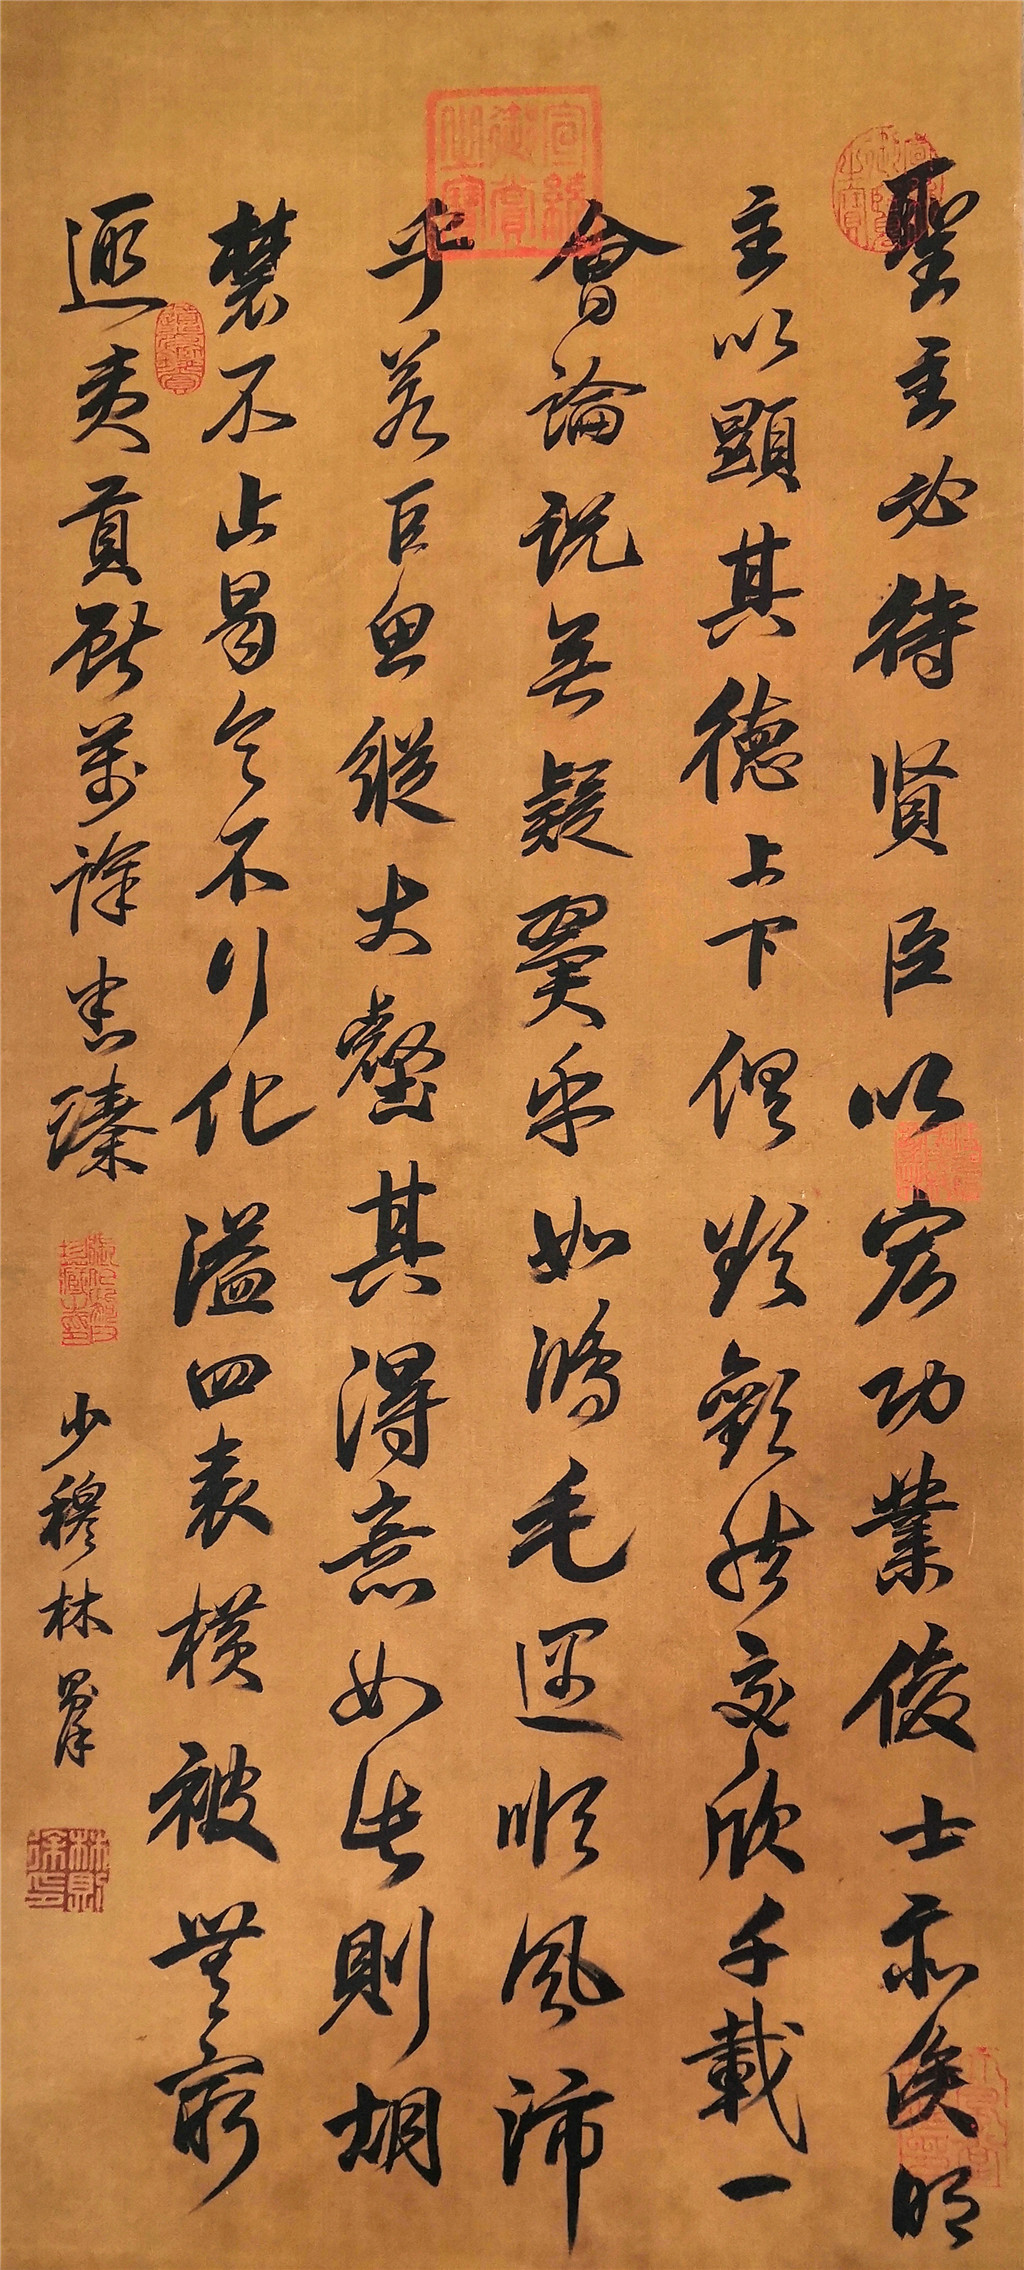 聖主必待賢臣以宏功業俊士亦俟明
主以顯其德上下俱欲歡然交欣千載一
會論說無疑翼乎如鴻毛遇順風沛
乎若巨魚縱大壑其得意如此則胡
禁不止曷令不行化溢四表橫被無窮
遐夷貢獻萬祥悉臻
少穆林則徐
宣統御覽之寶
林則徐印